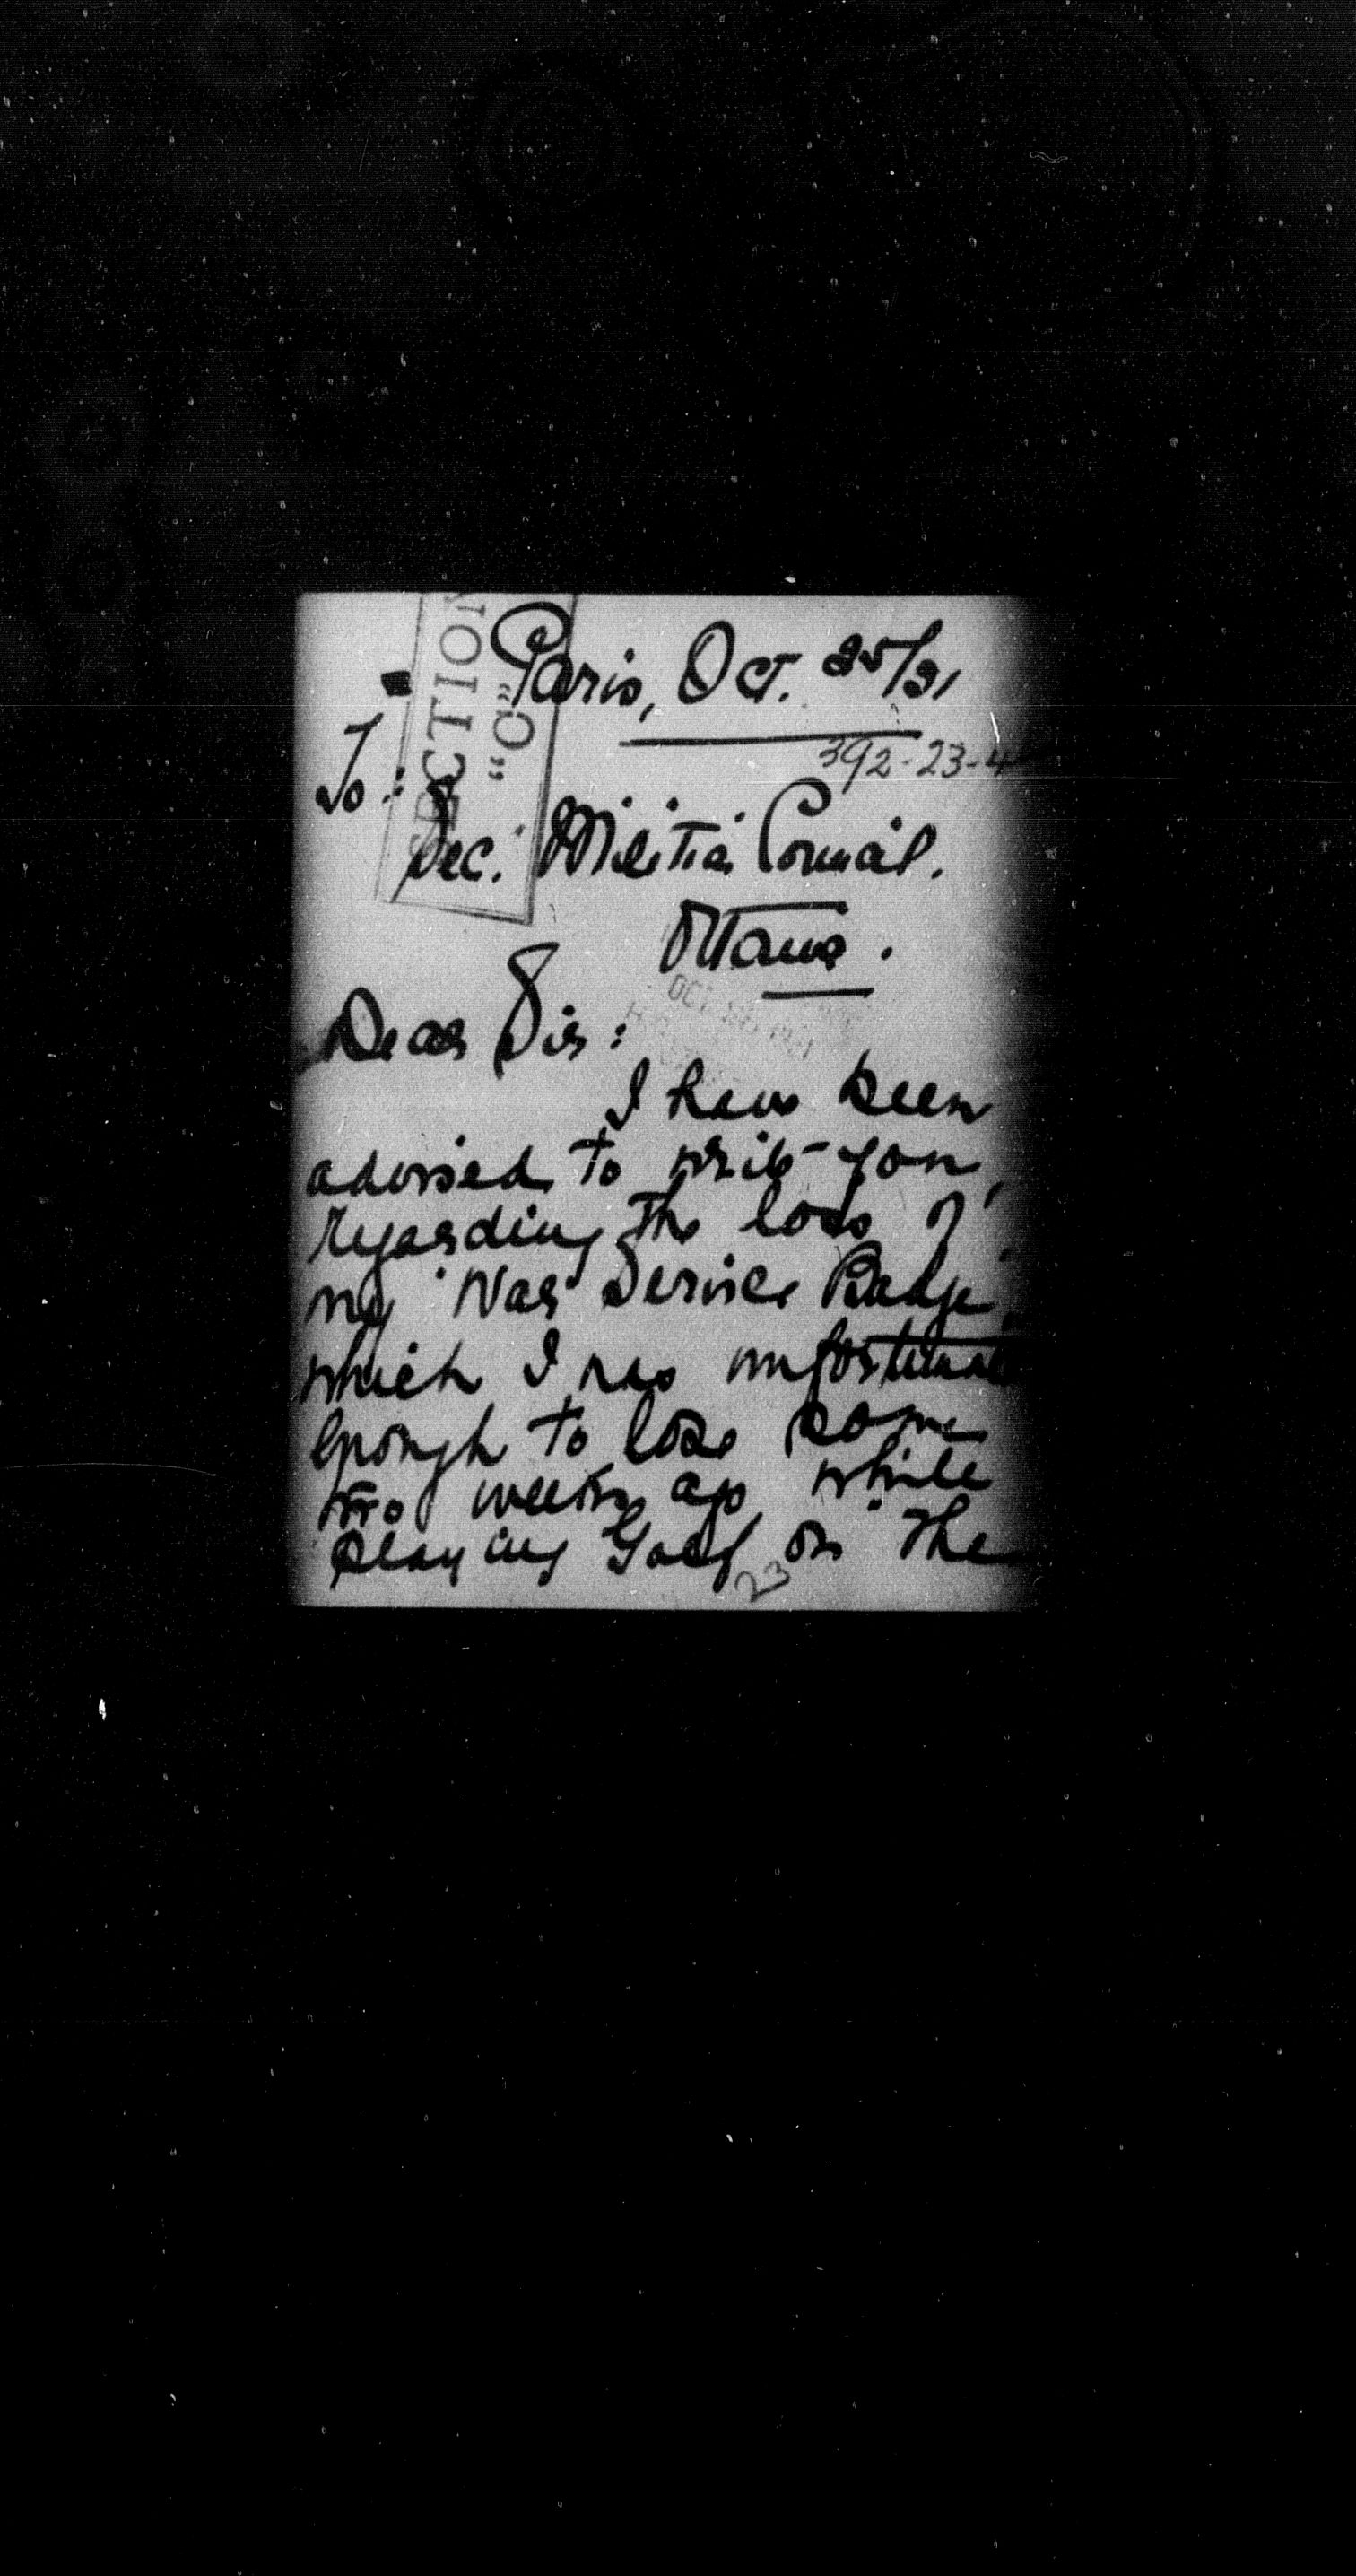 SECTION
"C"
Paris, Oct. 25/21
392-23-4
To:
Sec. Militia Council.
Ottawa.
OCT
Dear Sir:
I have been
advised to write you,
regarding the loss of
my War Service Badge
which I was unfortunate
enough to lose some
two weeks ago, while
playing Golf on the
23